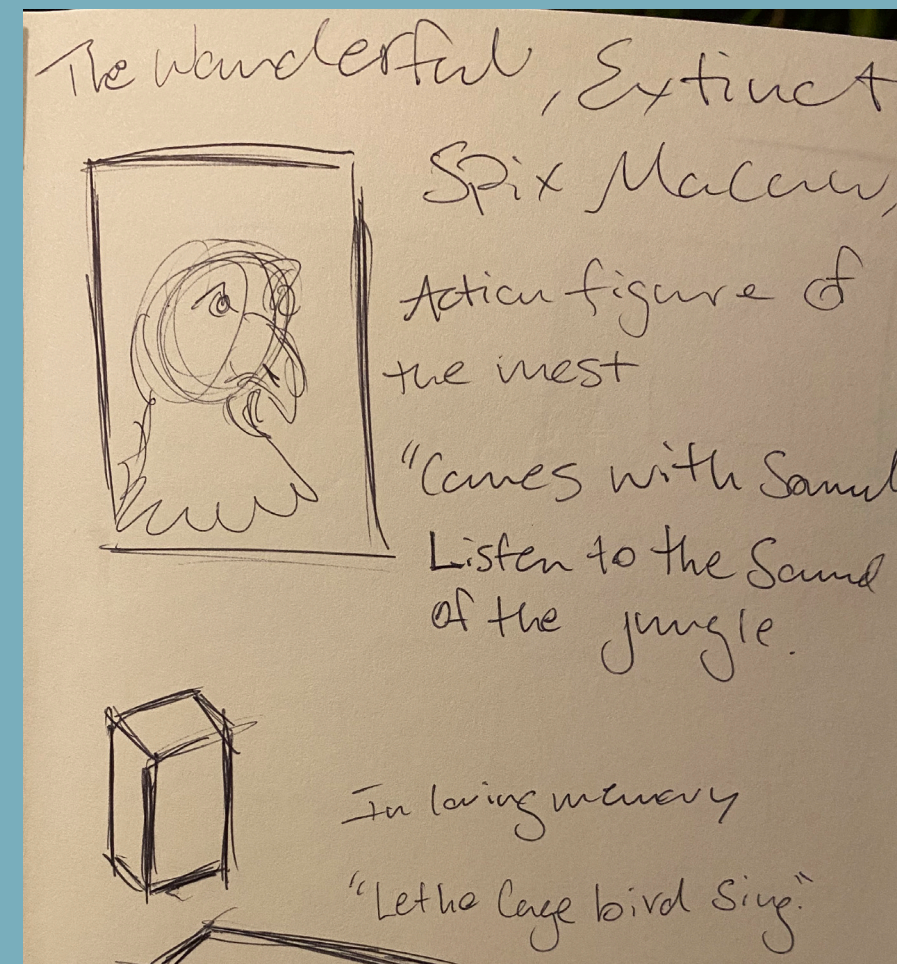 The Wonderful, Extinct
Spix Macaw,
Action figure of
the most
"Comes with Sound
Listen to the Sound
of the jungle.
In loving memory
"Let the Cage bird Sing."